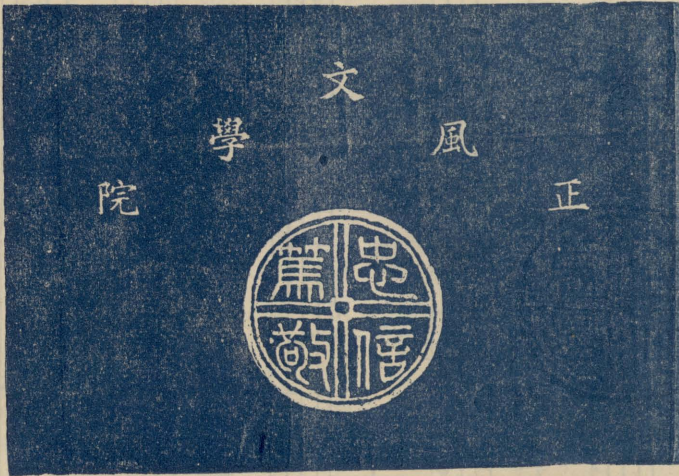 正風文學院
忠信
篤敬